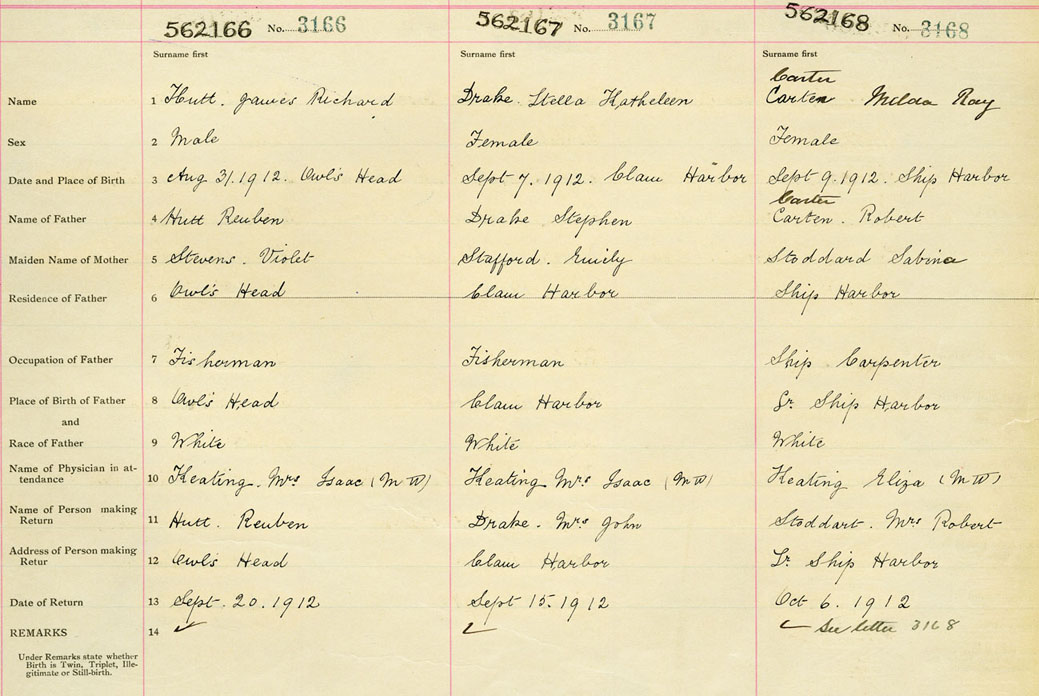 562166 No. 3166 562167 No. 3167 562168 No. 3168
Surname first Surname first Surname first
Carter
Name 1 Hutt. James Richard Drake. Stella Katheleen Carten Melda Ray
Sex 2 Male Female Female
Date and Place of Birth 3 Aug 31.1912. Owl's Head Sept 7. 1912. Clam Harbor Sept 9.1912. Ship Harbor
Carter
Name of Father 4 Hutt Reuben Drake Stephen Carten. Robert
Maiden Name of Mother 5 Stevens. Violet Stafford. Emily Stoddard Sabina
Residence of Father 6 Owl's Head Clam Harbor Ship Harbor
Occupation of Father 7 Fisherman Fisherman Ship Carpenter
Place of Birth of Father 8 Owl's Head Clam Harbor Ship Harbor
and
Race of Father 9 White White White
Name of Physician in at-
tendance 10 Keating. Mrs Isaac (M W) Keating Mrs Isaac (M W) Keating Eliza (M W)
Name of Person making
Return 11 Hutt. Reuben Drake. Mrs John Stoddart. Mrs Robert
Address of Person making
Retur 12 Owl's Head Clam Harbor Ship Harbor
Date of Return 13 Sept. 20.1912 Sept 15.1912 Oct 6. 1912
REMARKS 14 ✓ ✓ ✓ See letter 3168
Under Remarks state whether
Birth is Twin, Triplet, Ille-
gitimate or Still-birth.